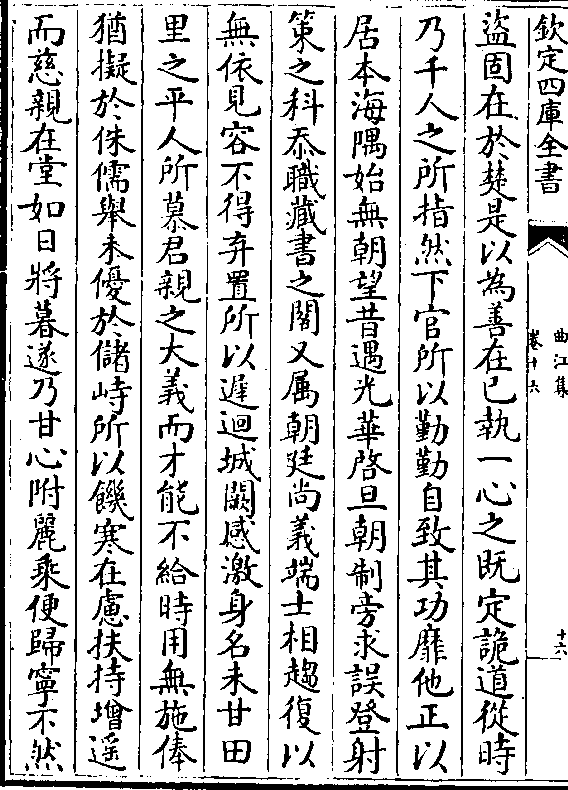 欽定四庫全書
曲江集
卷十六
十六
盜固在於楚是以為善在已執一心之既定詭道從時
乃千人之所指然下官所以勤勤自致其功靡他正以
居本海隅始無朝望昔遇光華啓旦朝制旁求誤登射
策之科忝職藏書之閣又属朝廷尚義端士相趨復以
無依見容不得弃置所以遲迴城闕感激身名未甘田
里之平人所慕君親之大義而才能不給時用無施俸
猶擬於侏儒舉未優於儲峙所以饑寒在慮扶持增遥
而慈親在堂如日將暮遂乃甘心附麗乘便歸寧不然